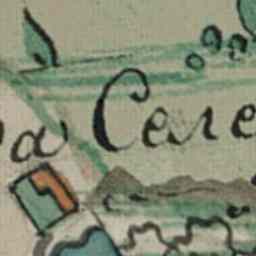 а Селе